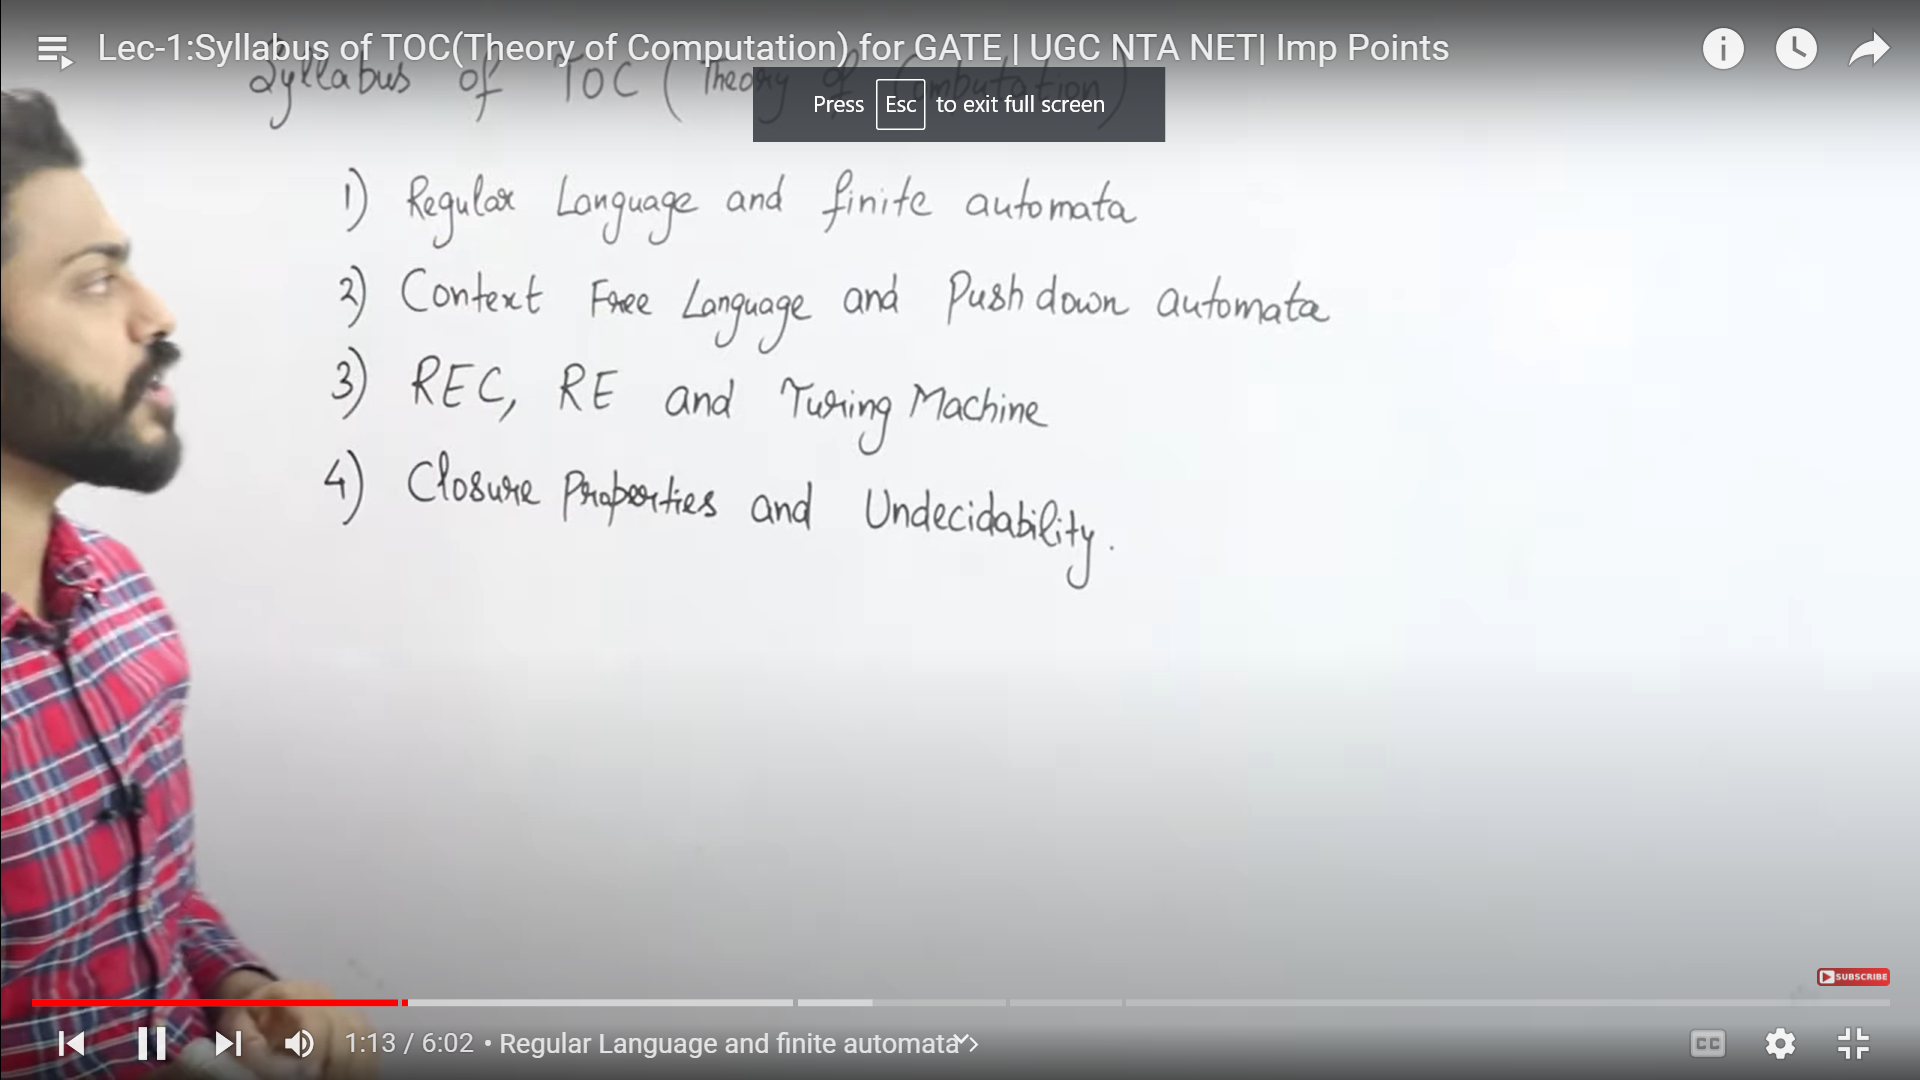 Lec-1:Syllabus of TOC(Theory of Computation) for GATE | UGC NTA NET| Imp Points
Syllabus of TOC (Theory of Computation)
Press Esc to exit full screen
1) Regular Language and finite automata
2) Context Free Language and Push down automata
3) REC, RE and Turing Machine
4) Closure Properties and Undecidability.
SUBSCRIBE
1:13 / 6:02 • Regular Language and finite automata
CC